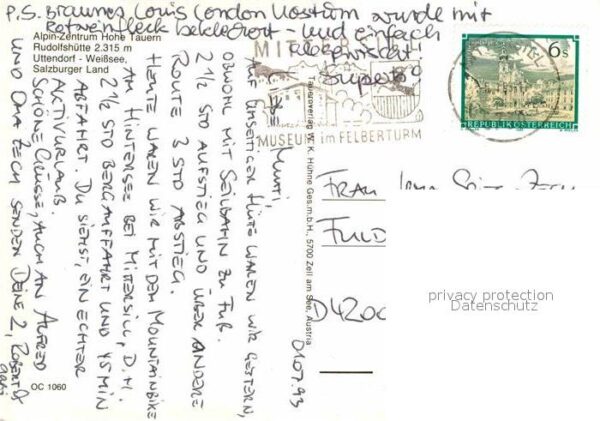 P.S. Braunes Louis London Kostüm wurde mit
Rotweinfleck bekleckert - und einfach
rausgewischt!
Superto
Alpin-Zentrum Hohe Tauern
Rudolfshütte 2.315 m
Uttendorf - Weißsee,
Salzburger Land
OC 1060
01.07.93
Mutti,
Auf unseitiger Hütte waren wir gestern,
obwohl mit Seilbahn zu Fuß.
2 1/2 Std Aufstieg und über andere
Route 3 Std Abstieg.
Heute waren wir mit dem Mountainbike
am Hintersee bei Mittersill, d.h.
2 1/2 Std Bergauffahrt und 45 min
Abfahrt. Du siehst, ein echter
Aktivurlaub.
Schöne Grüsse, auch an Alfred
und Oma Zech senden Deine 2, Robert &
Tauernverlag W. K. Hühne Ges.m.b.H., 5700 Zell am See, Austria
MIT
MUSEUM im FELBERTURM
6 s
REPUBLIK ÖSTERREICH
Frau
Fuld
D 4200
privacy protection
Datenschutz